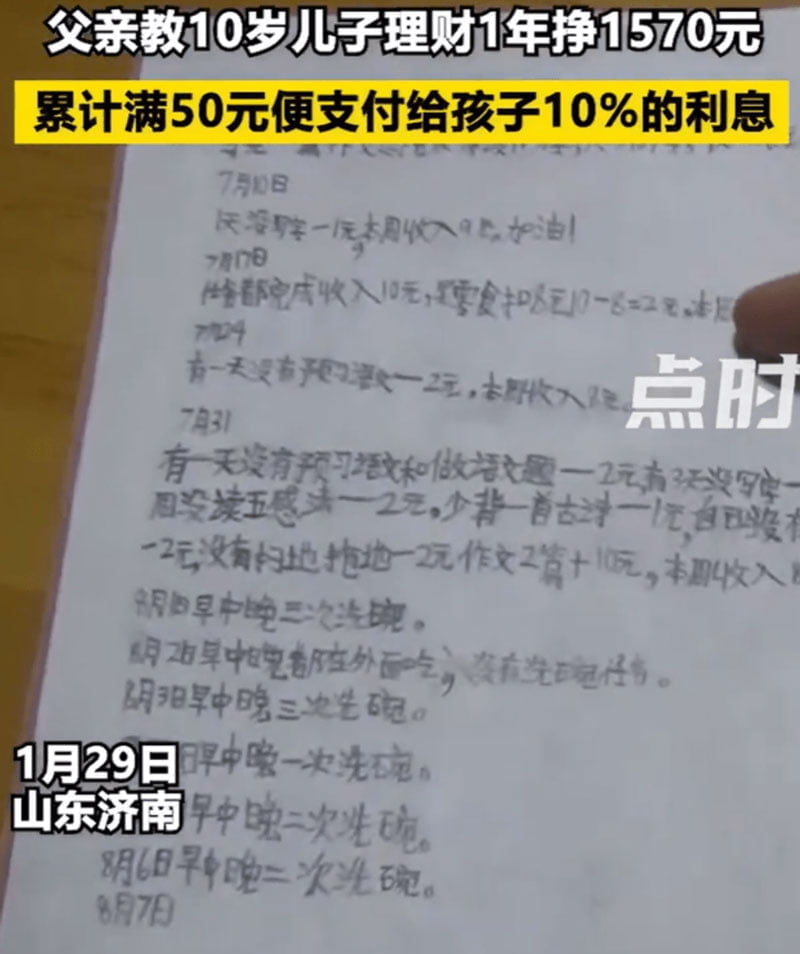 父亲教10岁儿子理财1年挣1570元
累计满50元便支付给孩子10%的利息
7月10日
1天没 一1元,本周收入9元,加油!
7月17日
都完成收入10元, 零食扣8元10-8=2元,本
7月24
有一天没有预习语文一2元,本周收入8元。
点时
7月31
有一天没有预习语文和做语文题一2元,有3天没写字一
周没读五感法一2元,少背一首古诗一1元,自己没有
-2元,没有扫地拖地一2元作文2篇+10元,本周收入8
8月1日早中晚三次洗碗。
8月2日早中晚都在外面吃,没有洗碗任务。
8月3日早中晚三次洗碗。
1月29日
日早中晚一次洗碗。
山东济南
早中晚二次洗碗。
8月6日早中晚二次洗碗。
8月7日